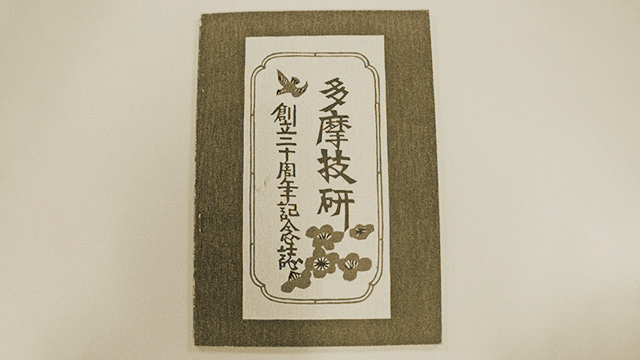 多摩技研
創立三十周年記念誌